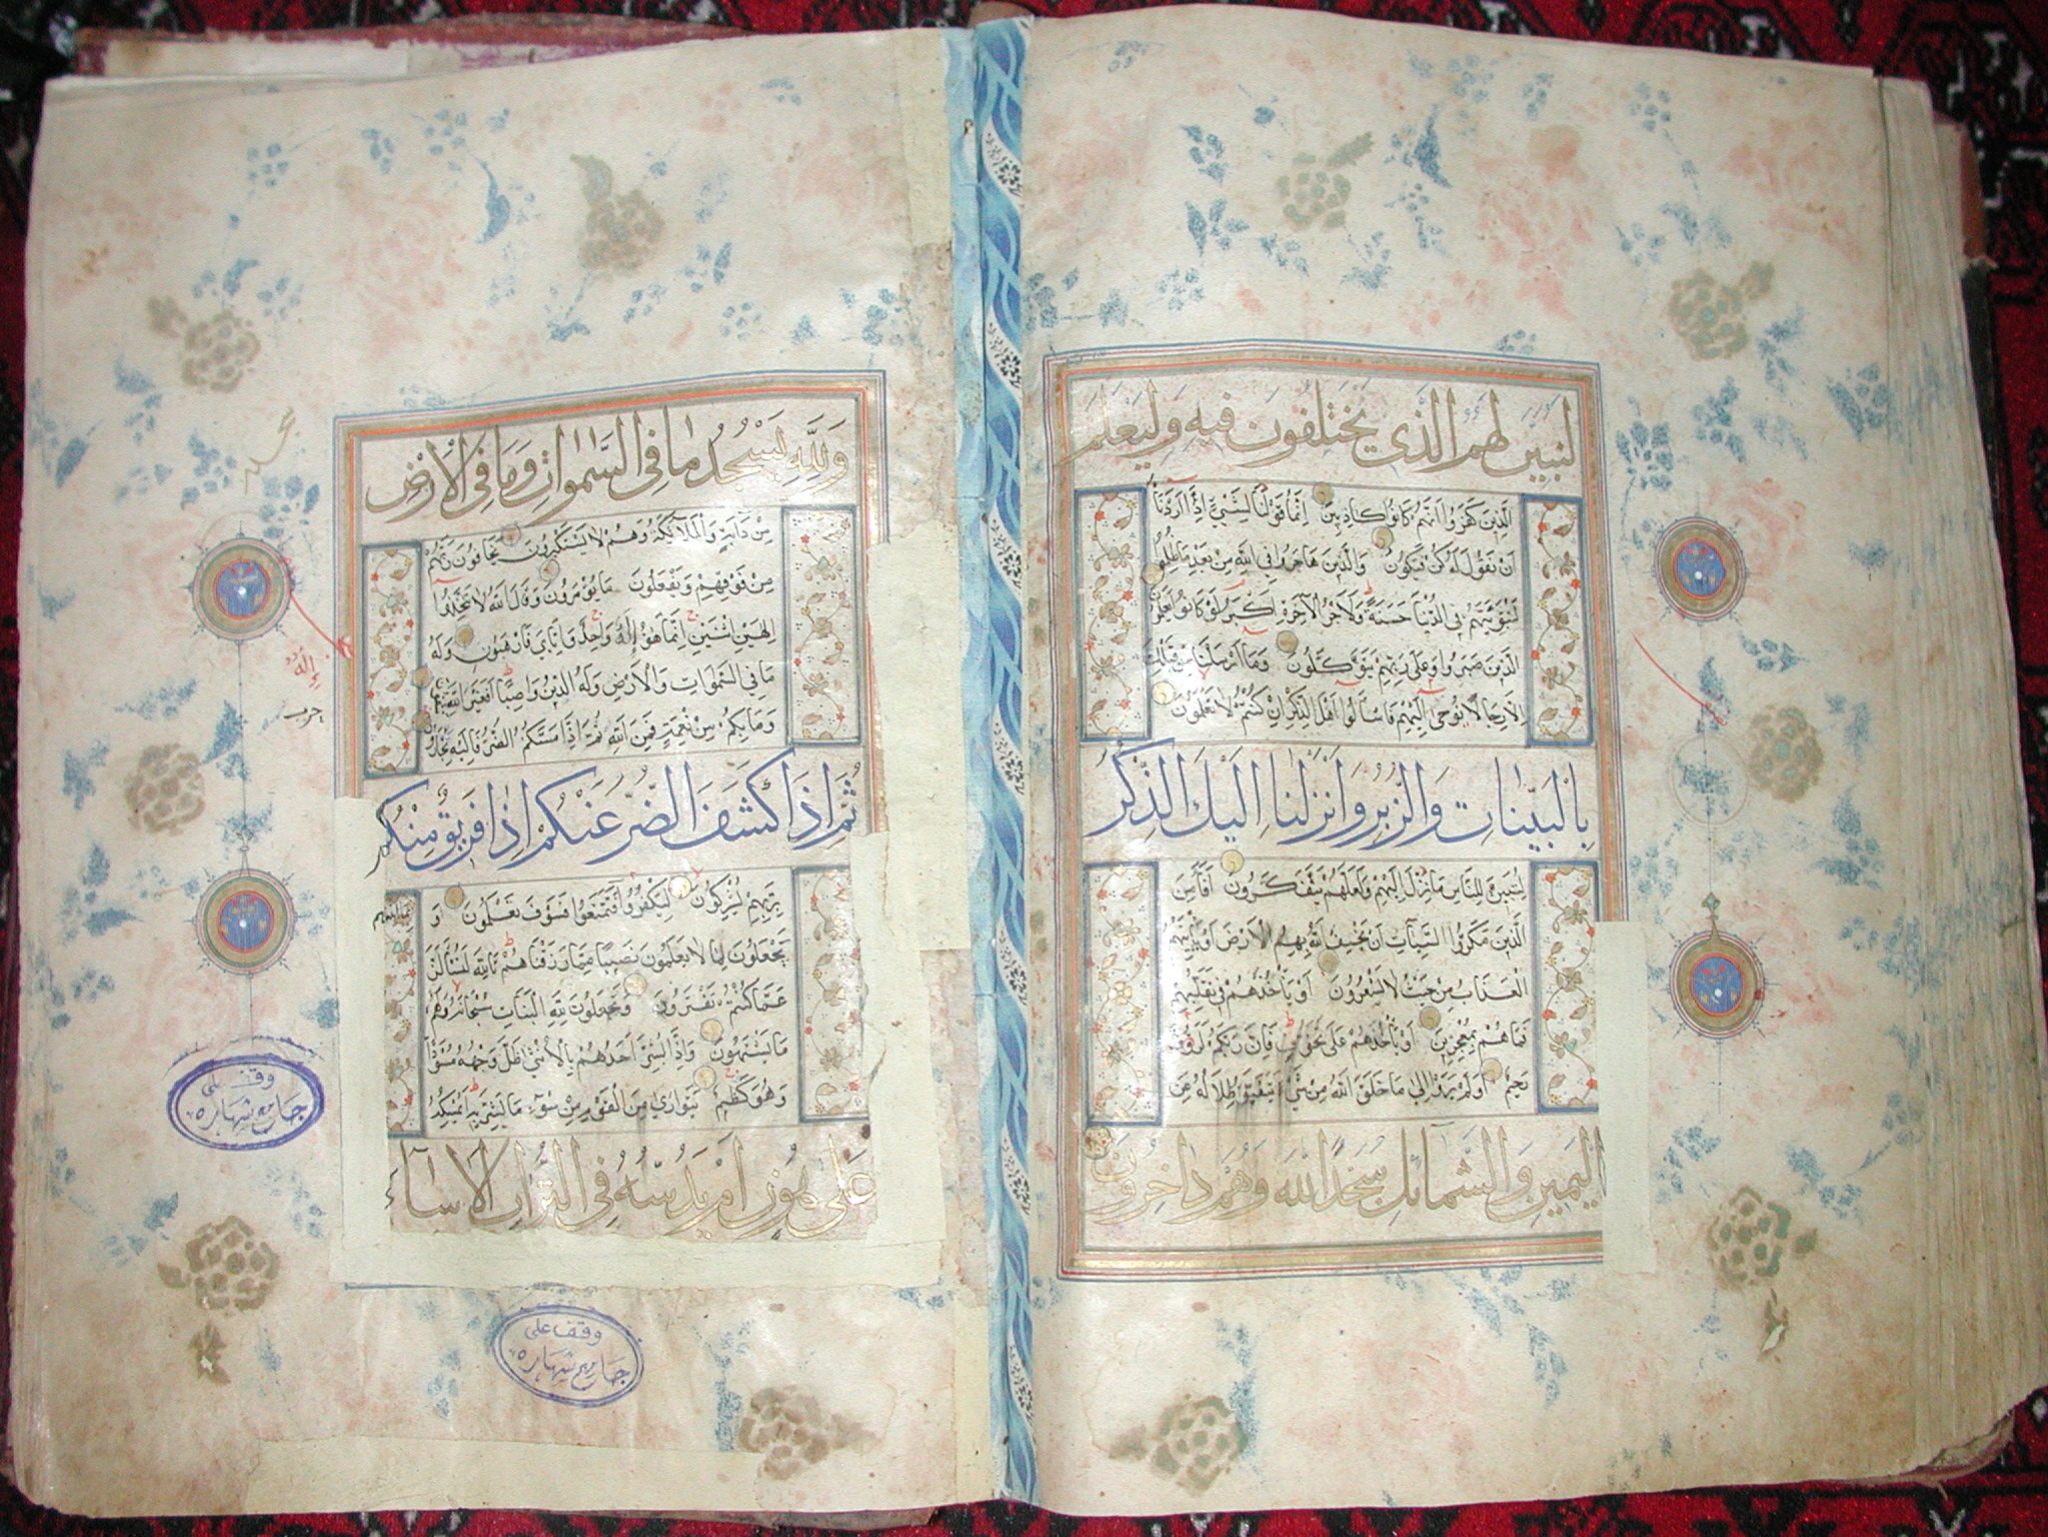 لنبين لهم الذي يختلفون فيه وليعلم
الذين كفروا أنهم كانوا كاذبين إنما قولنا لشيء إذا أردنا
أن نقول له كن فيكون والذين هاجروا في الله من بعد ما ظلموا
لنبوئنهم في الدنيا حسنة ولأجر الآخرة أكبر لو كانوا يعلمون
الذين صبروا وعلى ربهم يتوكلون وما أرسلنا من قبلك
إلا رجالا نوحي إليهم فاسألوا أهل الذكر إن كنتم لا تعلمون
بالبينات والزبر وأنزلنا إليك الذكر
لتبين للناس ما نزل إليهم ولعلهم يتفكرون أفأمن
الذين مكروا السيئات أن يخسف الله بهم الأرض أو يأتيهم
العذاب من حيث لا يشعرون أو يأخذهم في تقلبهم
فما هم بمعجزين أو يأخذهم على تخوف فإن ربكم لرؤف
رحيم أولم يروا إلى ما خلق الله من شيء يتفيؤ ظلاله عن
اليمين والشمائل سجدا لله وهم داخرون
ولله يسجد ما في السموات وما في الأرض
من دابة والملائكة وهم لا يستكبرون يخافون ربهم
من فوقهم ويفعلون ما يؤمرون وقال الله لا تتخذوا
إلهين اثنين إنما هو إله واحد فإياي فارهبون وله
ما في السموات والأرض وله الدين واصبا أفغير الله تتقون
وما بكم من نعمة فمن الله ثم إذا مسكم الضر فإليه تجأرون
ثم إذا كشف الضر عنكم إذا فريق منكم
بربهم يشركون ليكفروا بما آتيناهم فتمتعوا فسوف تعلمون و
يجعلون لما لا يعلمون نصيبا مما رزقناهم تالله لتسئلن
عما كنتم تفترون ويجعلون لله البنات سبحانه ولهم
ما يشتهون وإذا بشر أحدهم بالأنثى ظل وجهه مسودا
وهو كظيم يتوارى من القوم من سوء ما بشر به أيمسكه
على هون أم يدسه في التراب ألا ساء
إله
وقف على
جامع شهاره
وقف على
جامع شهاره